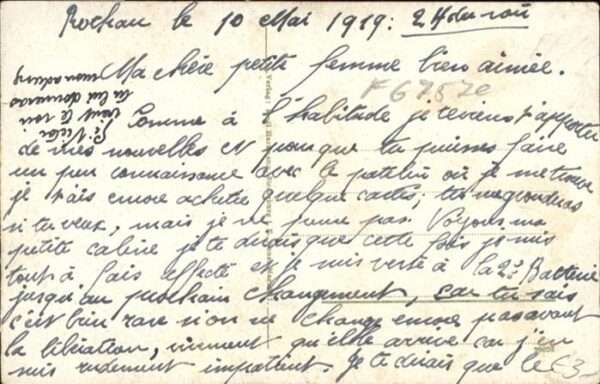 Rochan le 10 Mai 1919: 2 H du soir
Ma chère petite femme bien aimée.
F 67570
Si Victor
vient te voir
tu lui donneras
mon adresse
Comme à l'habitude je reviens t'apporter
de mes nouvelles et pour que tu puisses faire
un peu connaissance avec le patelin où je me trouve
je t'ais encore acheter quelque cartes; tu me gronderas
si tu veux, mais je ne pense pas. Voyons ma
petite cabine je te dirais que cette fois je suis
tout à fais affecté et je suis versé à la 2e Batterie
jusqu'au prochain changement, car tu sais
c'est bien rare si on ne change encore pas avant
la libération, vivement qu'elle arrive car j'en
suis rudement impatient. Je te dirais que le 63